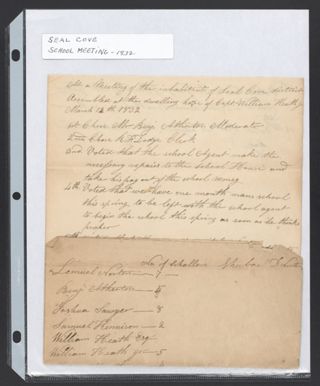 SEAL COVE
SCHOOL MEETING - 1832
At a Meeting of the inhabitants of Seal Cove district
Assembled at the dwelling hose of Capt William Heath
March 12th 1832
1st Chose Mr Benj Atherton Moderator
2nd Chose R. F. Lodge Clerk
3rd Voted that the school Agent make the
nessessary repairs to the School House and
take his pay out of the school money
4th Voted that we have one month mans school
this spring to be left with the school agent
to begin the school this spring as soon as he thinks
proper
No of schollars
Lemuel Norton - 7
Benj Atherton - 5
Joshua Sawyer - 8
Samuel Hennison - 2
William Heath Esq
William Heath Jr - 5